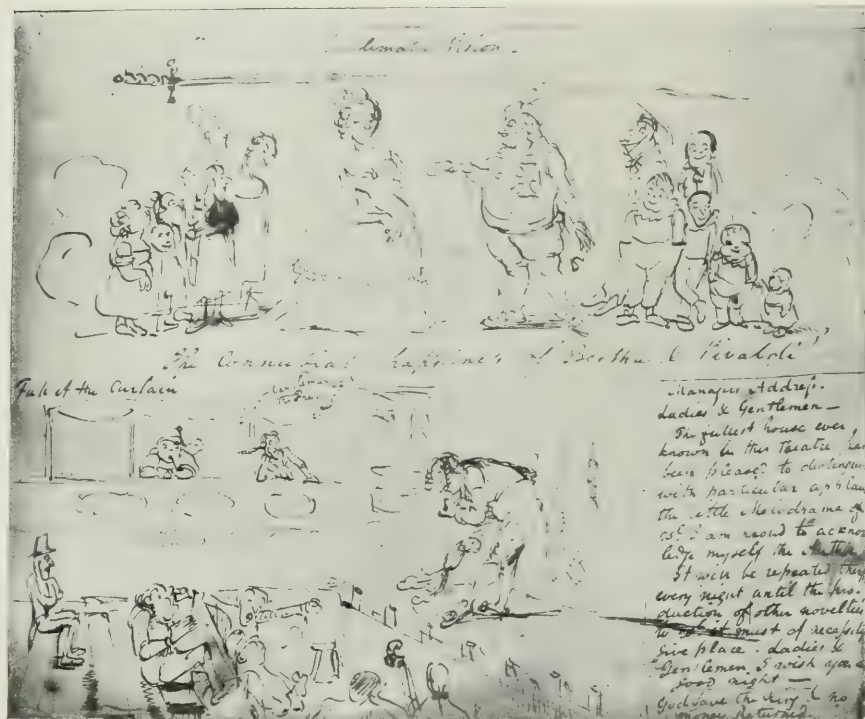 Vision.
The Connubial Happiness of Bertha & Vivaldi
Fall of the Curtain
Managers Addreſs.
Ladies & Gentlemen —
The fullest house ever
known in this Theatre has
been pleased to distinguish
with particular applause
the little Melodrame of
I am proud to acknow
ledge myself the Author
It will be repeated
every night until the pro-
duction of other novelties
to it must of neceſsity
Give place. Ladies &
Gentlemen I wish you a
good night —
God save the King & no
money Returned